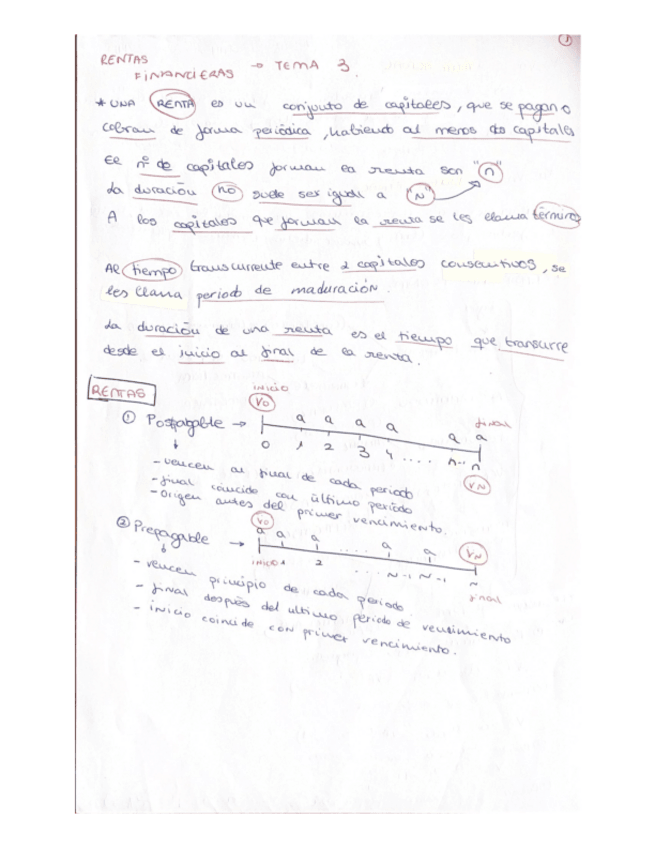 1
RENTAS
FINANCIERAS → TEMA 3.
* UNA RENTA es un conjunto de capitales, que se pagan o
cobran de forma periódica, habiendo al menos dos capitales
El nº de capitales forman la renta son "n"
La duración no suele ser igual a "N"
A los capitales que forman la renta se les llama término
Al tiempo transcurrente entre 2 capitales consecutivos, se
les llama periodo de maduración.
La duración de una renta es el tiempo que transcurre
desde el inicio al final de la renta.
RENTAS
① Pospagable →
INICIO
V0
a a a a a a
final
0 1 2 3 4 .... n-1 n
VN
- vencen al final de cada periodo
- final coincido con último periodo
- Origen antes del primer vencimiento.
② Prepagable →
V0
a a a .... a a
VN
INICIO 1 2 ... N-1 N-1 N
final
- vencen principio de cada periodo
- final después del ultimo periodo de vencimiento
- inicio coincide con primer vencimiento.